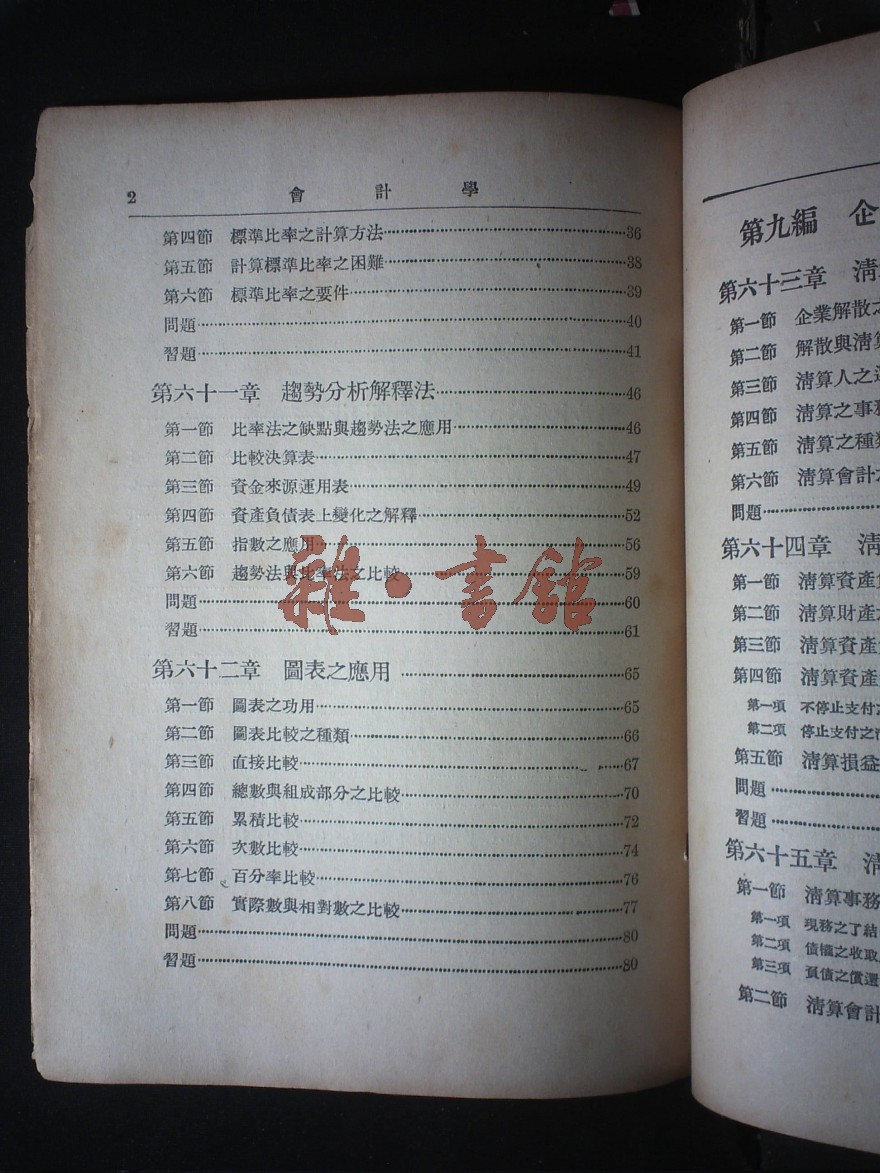 2 會計學
第四節 標準比率之計算方法……36
第五節 計算標準比率之困難……38
第六節 標準比率之要件……39
問題……40
習題……41
第六十一章 趨勢分析解釋法……46
第一節 比率法之缺點與趨勢法之應用……46
第二節 比較決算表……47
第三節 資金來源運用表……49
第四節 資產負債表上變化之解釋……52
第五節 指數之應用……56
第六節 趨勢法與比率法之比較……59
問題……60
習題……61
第六十二章 圖表之應用……65
第一節 圖表之功用……65
第二節 圖表比較之種類……66
第三節 直接比較……67
第四節 總數與組成部分之比較……70
第五節 累積比較……72
第六節 次數比較……74
第七節 百分率比較……76
第八節 實際數與相對數之比較……77
問題……80
習題……80
雜·書館
第九編 企
第六十三章 清
第一節 企業解散之
第二節 解散與清算
第三節 清算人之
第四節 清算之事務
第五節 清算之種類
第六節 清算會計
問題……
第六十四章 清
第一節 清算資產
第二節 清算財產
第三節 清算資產
第四節 清算資產
第一項 不停止支付之
第二項 停止支付之
第五節 清算損益
問題……
習題……
第六十五章 清
第一節 清算事務
第一項 現務之了結
第二項 債權之收取
第三項 負債之償還
第二節 清算會計